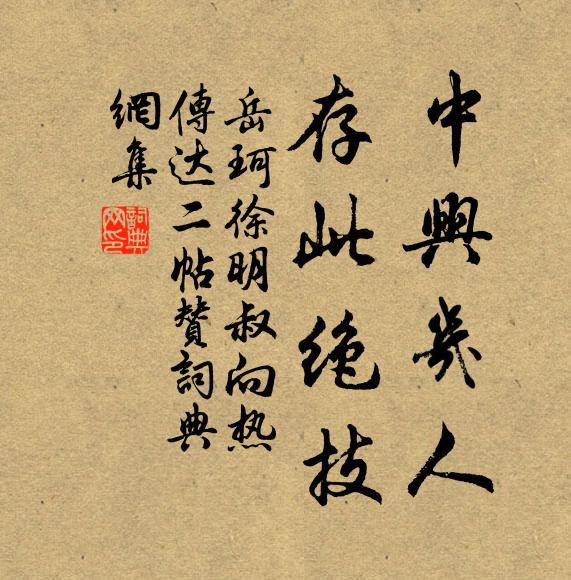 中興幾人
存此绝技
岳珂徐明叔向热
傳达二帖贊詞典
網集
詞典网印